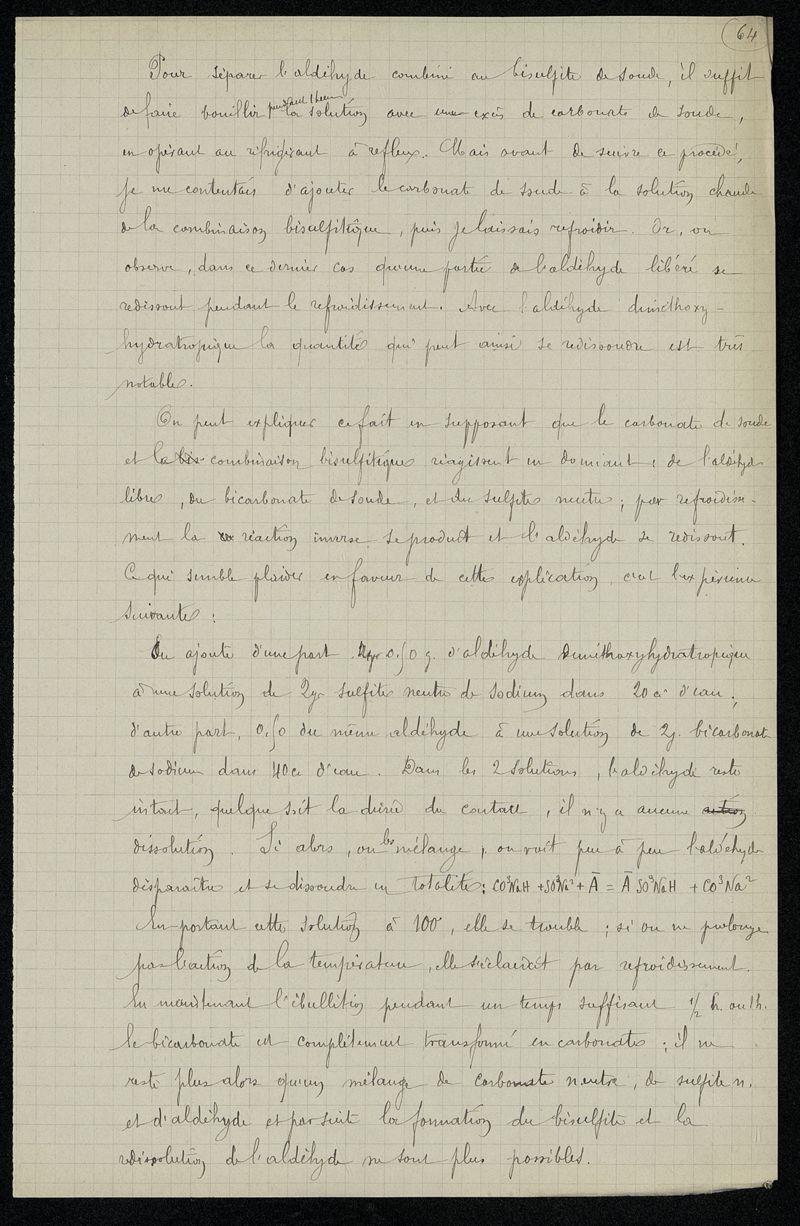 64
Pour séparer l'aldéhyde combiné au bisulfite de soude, il suffit
pendant 1 heure
de faire bouillir la solution avec un excès de carbonate de soude,
en opérant au réfrigérant à reflux. Mais avant de suivre ce procédé,
je me contentais d'ajouter le carbonate de soude à la solution chaude
de la combinaison bisulfitique, puis je laissais refroidir. Or, on
observe, dans ce dernier cas qu'une partie de l'aldéhyde libéré se
redissout pendant le refroidissement. Avec l'aldéhyde diméthoxy-
hydratropique la quantité qui peut ainsi se redissoudre est très
notable.
On peut expliquer ce fait en supposant que le carbonate de soude
et la combinaison bisulfitique réagissent en donnant : de l'aldéhyde
libre, du bicarbonate de soude, et du sulfite neutre ; par refroidisse-
ment la réaction inverse se produit et l'aldéhyde se redissout.
Ce qui semble plaider en faveur de cette explication, c'est l'expérience
suivante :
On ajoute d'une part 0,50 g. d'aldéhyde diméthoxyhydratropique
à une solution de 2gr sulfite neutre de sodium dans 20cc d'eau ;
d'autre part, 0,50 du même aldéhyde à une solution de 2g. bicarbonate
de sodium dans 40cc d'eau. Dans les 2 solutions, l'aldéhyde reste
intact, quelque soit la durée du contact, il n'y a aucune action
dissolution. Si alors, on les mélange, on voit peu à peu l'aldéhyde
disparaître et se dissoudre en totalité : CO³NaH + SO³Na² + Ā = Ā SO³NaH + CO³Na²
En portant cette solution à 100°, elle se trouble ; si on ne prolonge
pas l'action de la température, elle s'éclaircit par refroidissement.
En maintenant l'ébullition pendant un temps suffisant 1/2 h. ou 1h.
le bicarbonate est complètement transformé en carbonate ; il ne
reste plus alors qu'un mélange de carbonate neutre, de sulfite n.
et d'aldéhyde et par suite la formation du bisulfite et la
redissolution de l'aldéhyde ne sont plus possibles.